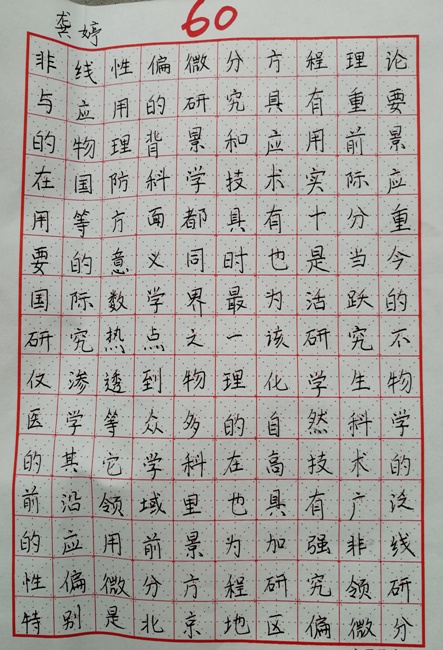 龚婷
60
非线性偏微分方程理论
与应用的研究具有重要
的物理背景和应用前景
在国防科学技术实际应
用等方面都具有十分重
要的意义同时也是当今
国际数学界最为活跃的
研究热点之一该研究不
仅渗透到物理化学生物
医学等众多的自然科学
的其它学科在高技术的
前沿领域里也具有广泛
的应用前景为加强非线
性偏微分方程研究领研
特别是北京地区偏微分